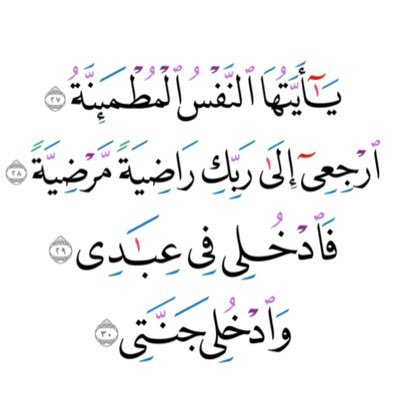 يَٰٓأَيَّتُهَا ٱلنَّفْسُ ٱلْمُطْمَئِنَّةُ ٢٧
ٱرْجِعِىٓ إِلَىٰ رَبِّكِ رَاضِيَةً مَّرْضِيَّةً ٢٨
فَٱدْخُلِى فِى عِبَٰدِى ٢٩
وَٱدْخُلِى جَنَّتِى ٣٠